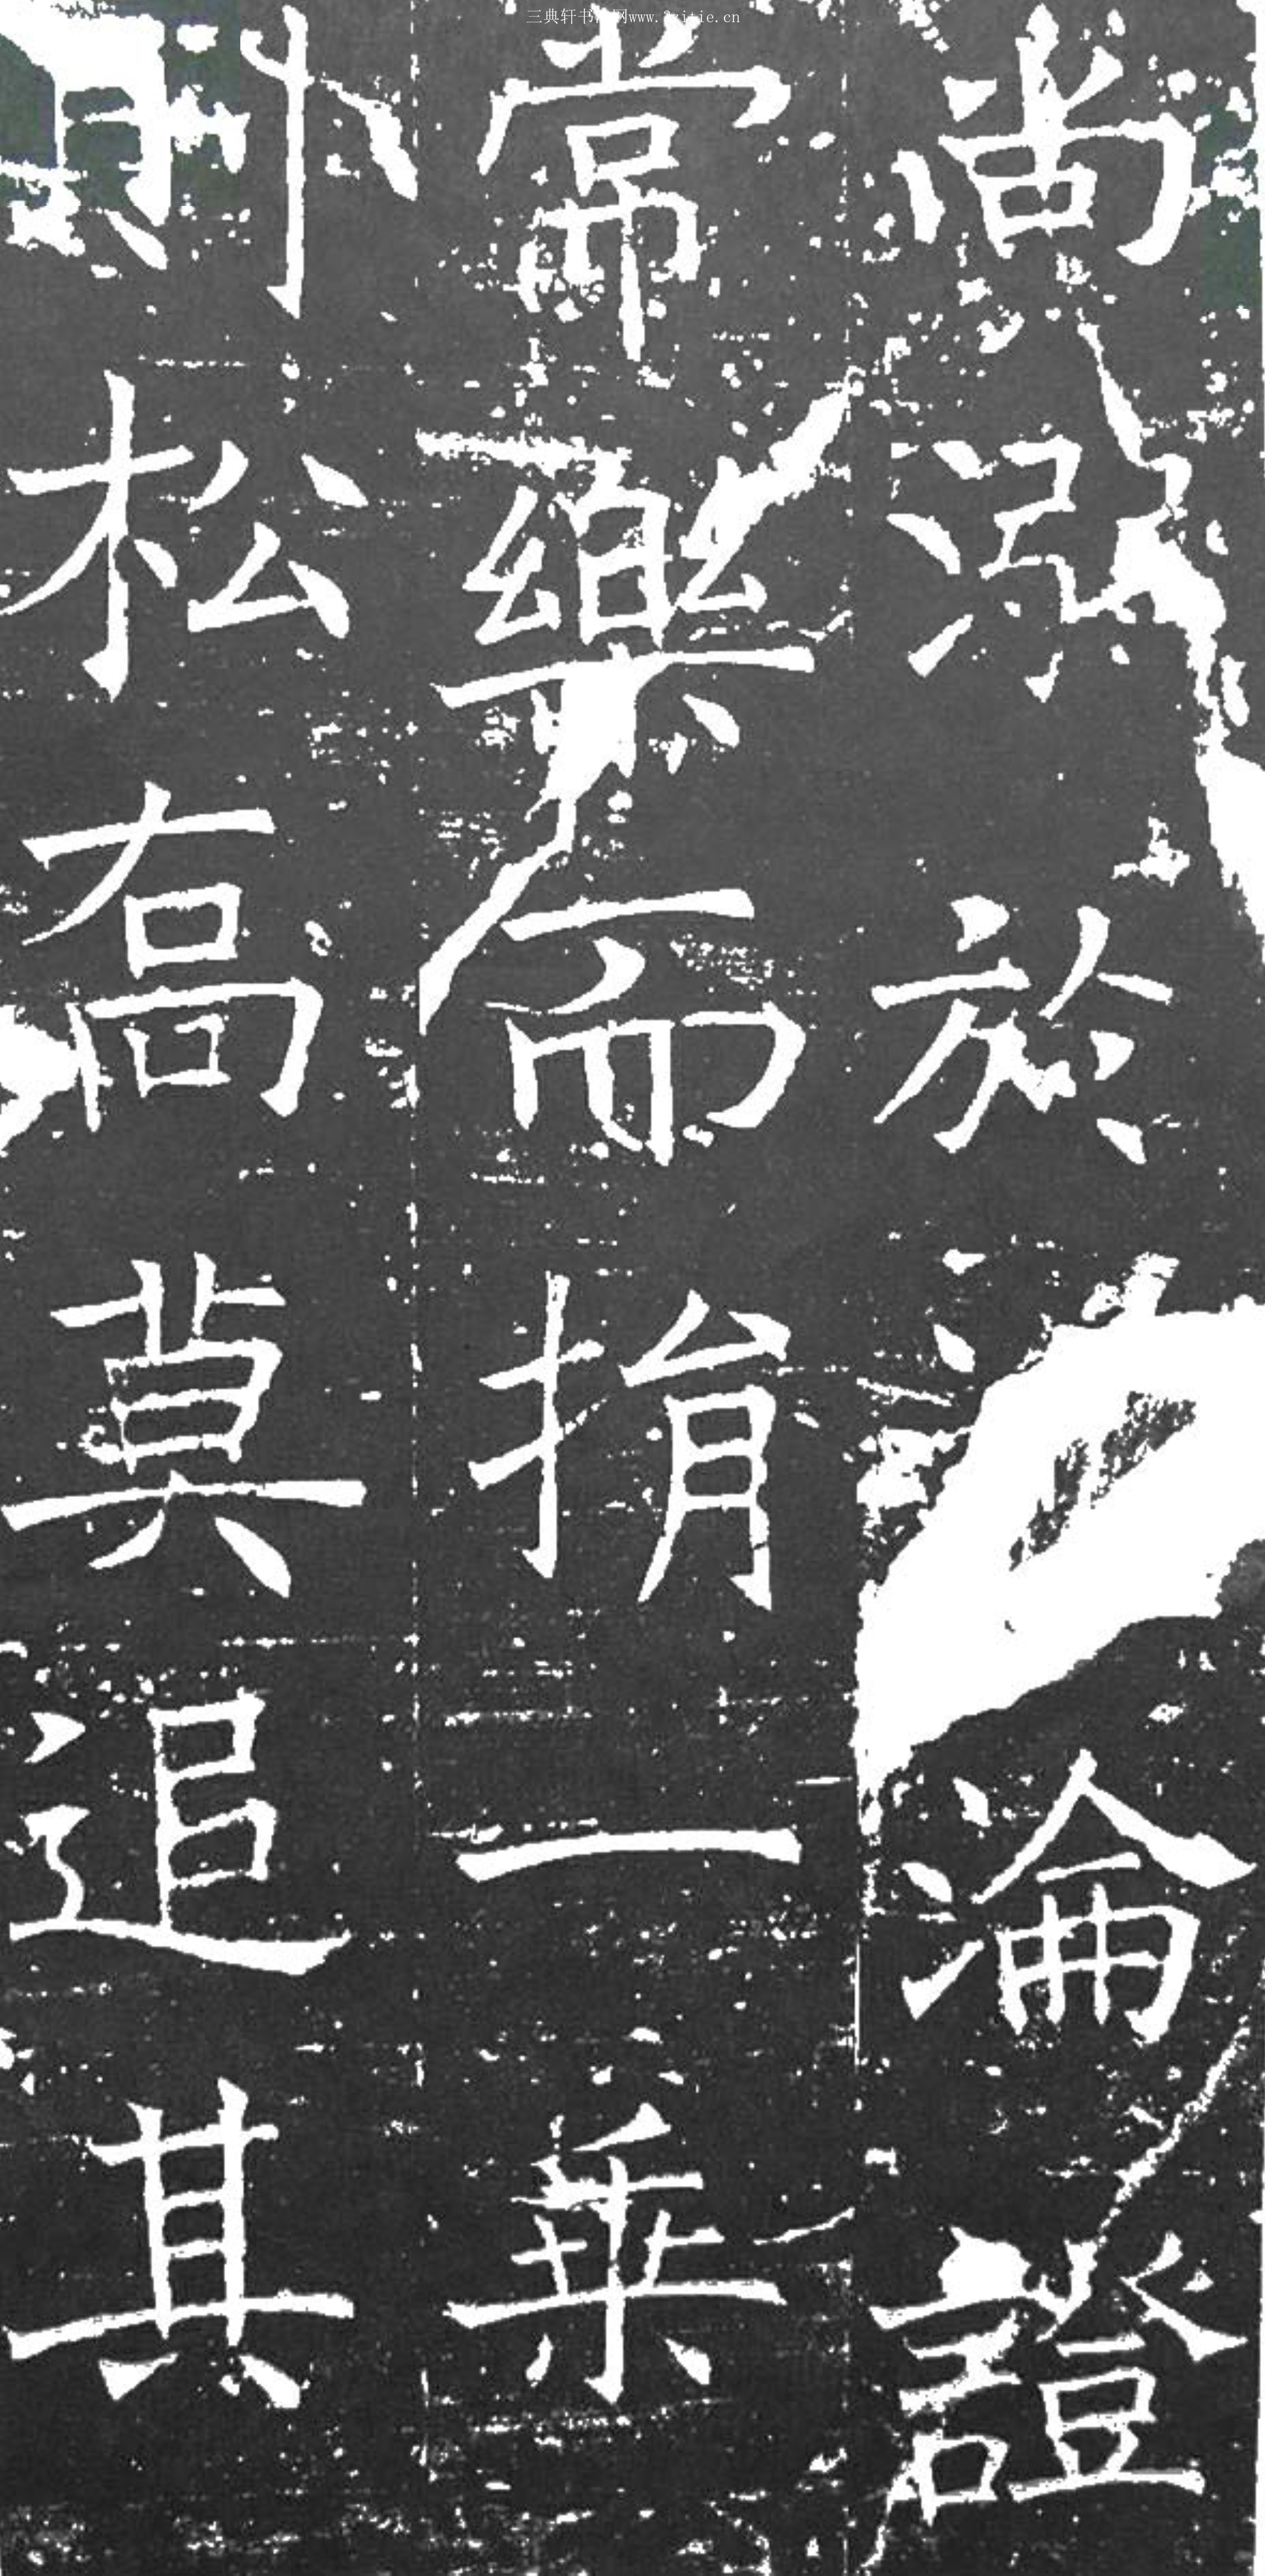 三典轩书法网www.3zitie.cn
尚溺於淪證
常樂而捐一乘
松喬莫追其